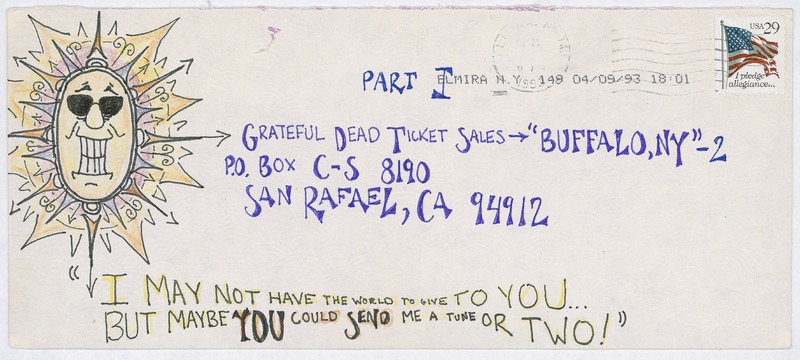 USA 29
I pledge
allegiance...
PART I
ELMIRA N.Y. 149 04/09/93 18:01
GRATEFUL DEAD TICKET SALES → "BUFFALO, NY" -2
P.O. BOX C-S 8190
SAN RAFAEL, CA 94912
"I MAY NOT HAVE THE WORLD TO GIVE TO YOU...
BUT MAYBE YOU COULD SEND ME A TUNE OR TWO!"